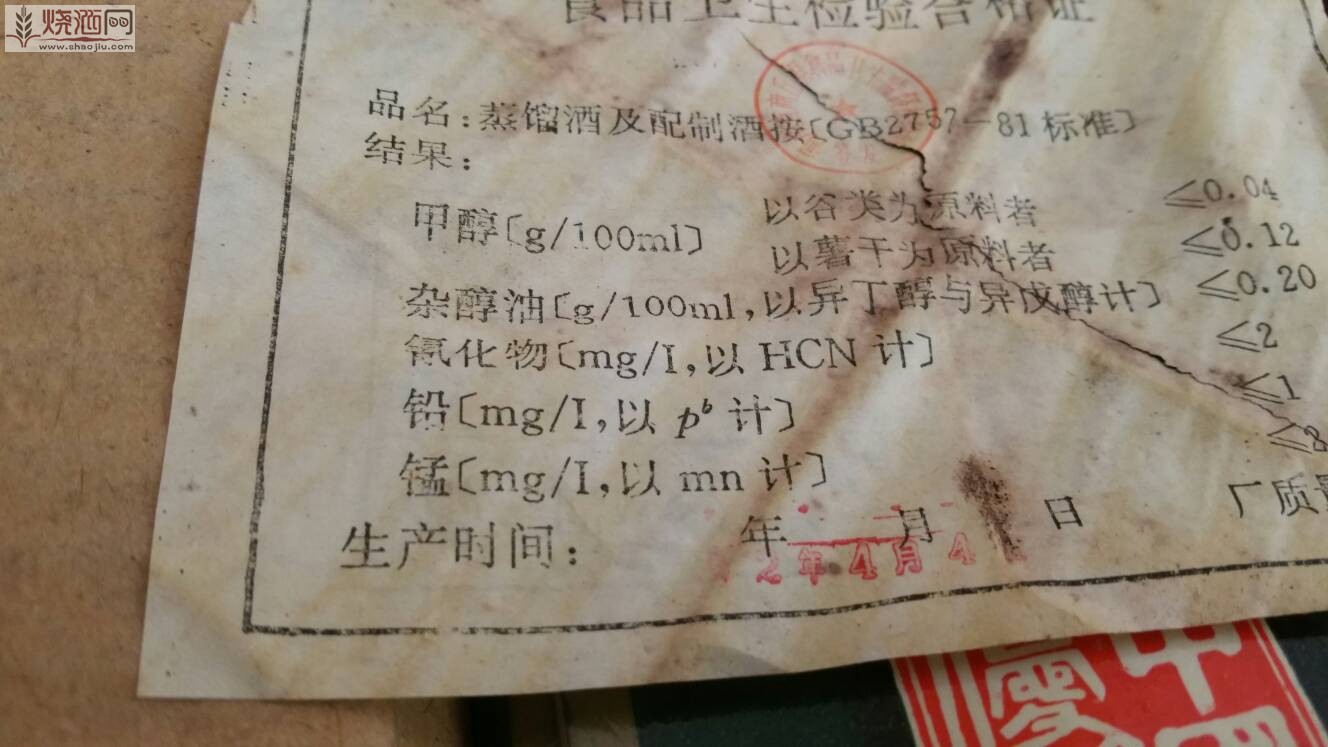 烧酒网
www.shaojiu.com
食品卫生检验合格证
品名：蒸馏酒及配制酒按〔GB2757-81标准〕
结果：
甲醇〔g/100ml〕
以谷类为原料者 ≤0.04
以薯干为原料者 ≤0.12
杂醇油〔g/100ml，以异丁醇与异戊醇计〕 ≤0.20
氰化物〔mg/I，以HCN计〕 ≤2
铅〔mg/I，以pb计〕 ≤1
锰〔mg/I，以mn计〕 ≤2
生产时间： 年 月 日 厂质量
2年4月4
中